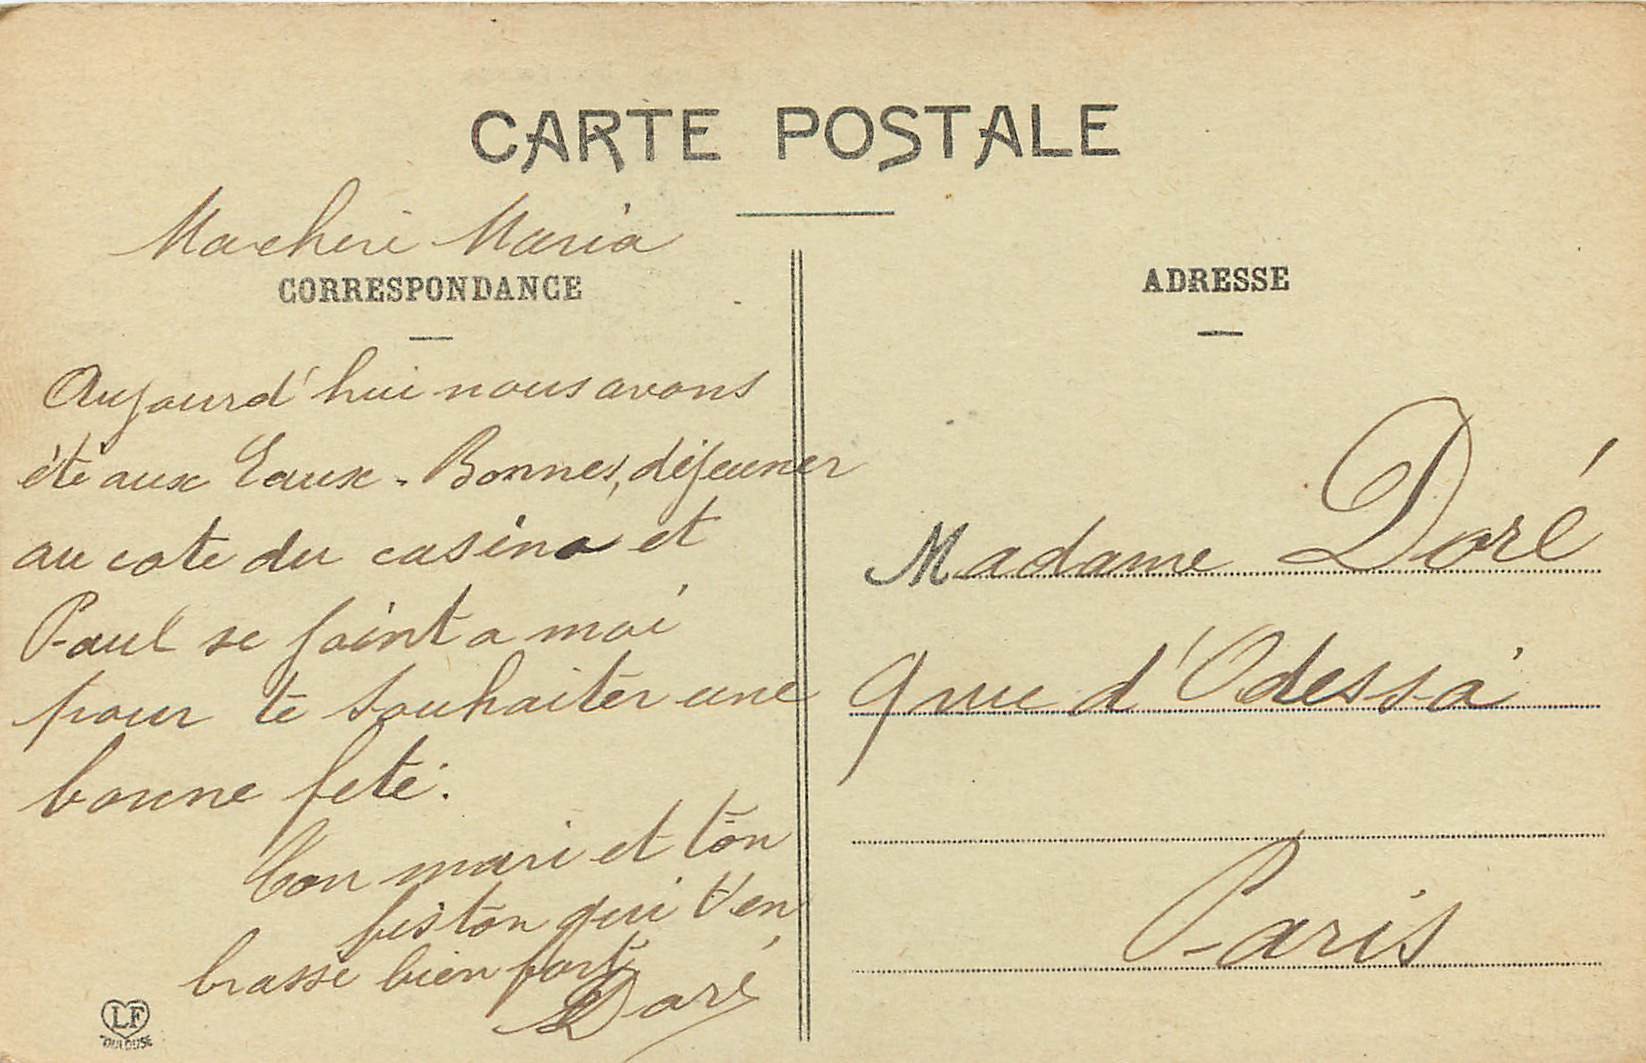 CARTE POSTALE
Ma cheri Maria
CORRESPONDANCE
Aujourd'hui nous avons
été aux Eaux-Bonnes, déjeuner
au cote du casino et
Paul se joint a moi
pour te souhaiter une
bonne fete.
Ton mari et ton
fiston qui t'en
brasse bien fort
Doré
LF
TOULOUSE
ADRESSE
Madame Doré
9 rue d'Odessa
Paris